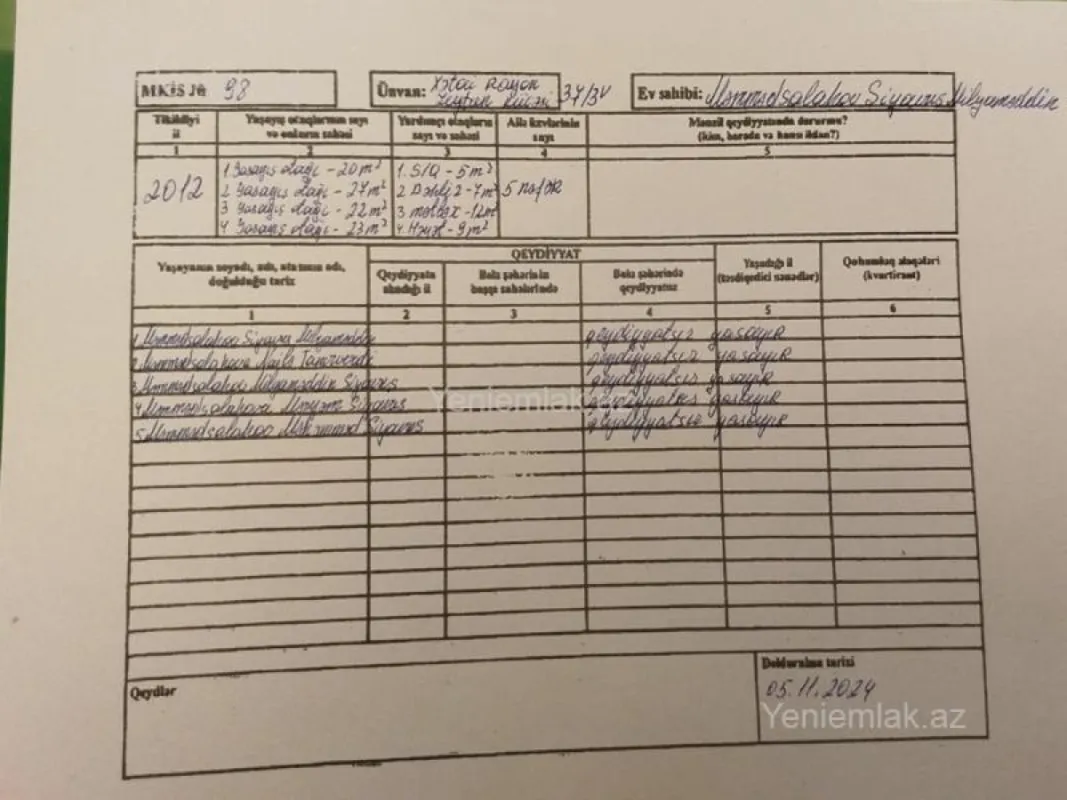 MKİS № 98
Ünvan: Xətai Rayon
Zeytun Küçəsi 37/3V
Ev sahibi: Məmmədsalahov Siyavuş
Tikildiyi il
Yaşayış otaqlarının sayı və onların sahəsi
Yardımçı otaqların sayı və sahəsi
Ailə üzvlərinin sayı
Mənzil qeydiyyatında dururmu? (kim, harada və hansı ildən?)
1 2 3 4 5
2012
1. Yaşayış otağı - 20 m²
2 Yaşayış otağı - 27 m²
3 Yaşayış otağı - 22 m²
4. Yaşayış otağı - 23 m²
1. S/Q - 5 m²
2 Dəhliz - 7 m²
3 mətbəx - 12 m²
4. Həyət - 9 m²
5 nəfər
Yaşayanın soyadı, adı, atasının adı, doğulduğu tarix
QEYDİYYAT
Qeydiyyata alındığı il
Bakı şəhərinin başqa sahələrində
Bakı şəhərində qeydiyyatsız
Yaşadığı il (təsdiqedici sənədlər)
Qohumluq əlaqələri (kvartirant)
1 2 3 4 5 6
1 Məmmədsalahov qeydiyyatsız yaşayır
2 Məmmədsalahova qeydiyyatsız yaşayır
3 Məmmədsalahov Siyavuş qeydiyyatsız yaşayır
4 Məmmədsalahova Məryəm Siyavuş qeydiyyatsız yaşayır
5 Məmmədsalahov Məhəmməd Siyavuş qeydiyyatsız yaşayır
Yeniemlak.az
Qeydlər
Doldurulma tarixi
05.11.2024
Yeniemlak.az